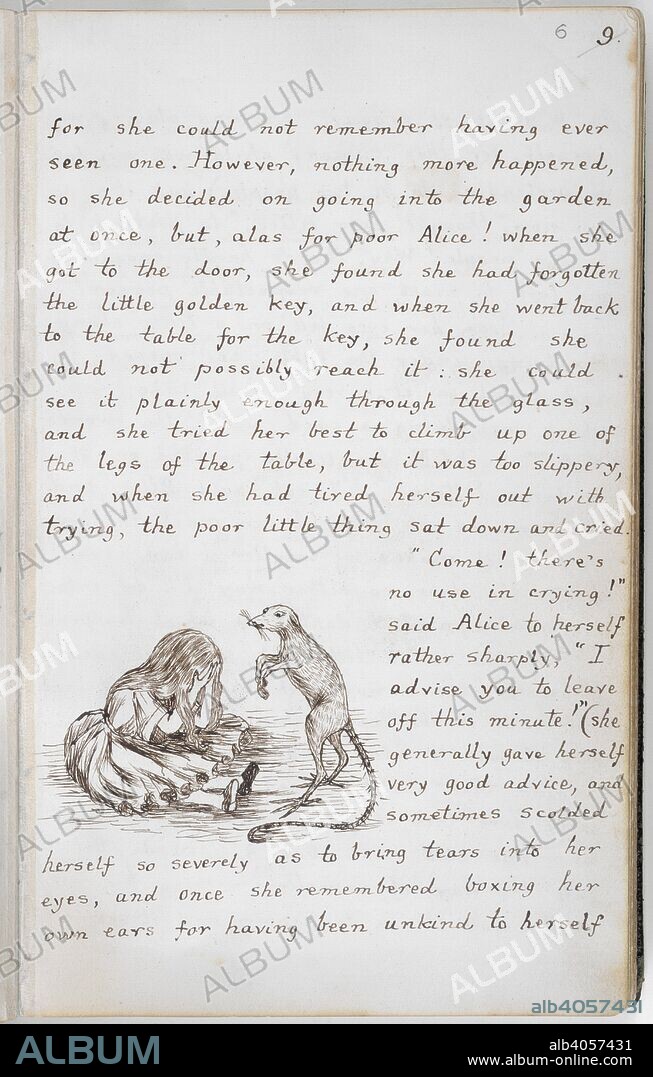 6 9.
for she could not remember having ever
seen one. However, nothing more happened,
so she decided on going into the garden
at once, but, alas for poor Alice! when she
got to the door, she found she had forgotten
the little golden key, and when she went back
to the table for the key, she found she
could not possibly reach it: she could
see it plainly enough through the glass,
and she tried her best to climb up one of
the legs of the table, but it was too slippery,
and when she had tired herself out with
trying, the poor little thing sat down and cried.
"Come! there's
no use in crying!"
said Alice to herself
rather sharply, "I
advise you to leave
off this minute!" (she
generally gave herself
very good advice, and
sometimes scolded
herself so severely as to bring tears into her
eyes, and once she remembered boxing her
own ears for having been unkind to herself
alb4057431
ALBUM
alb4057431
www.album-online.com